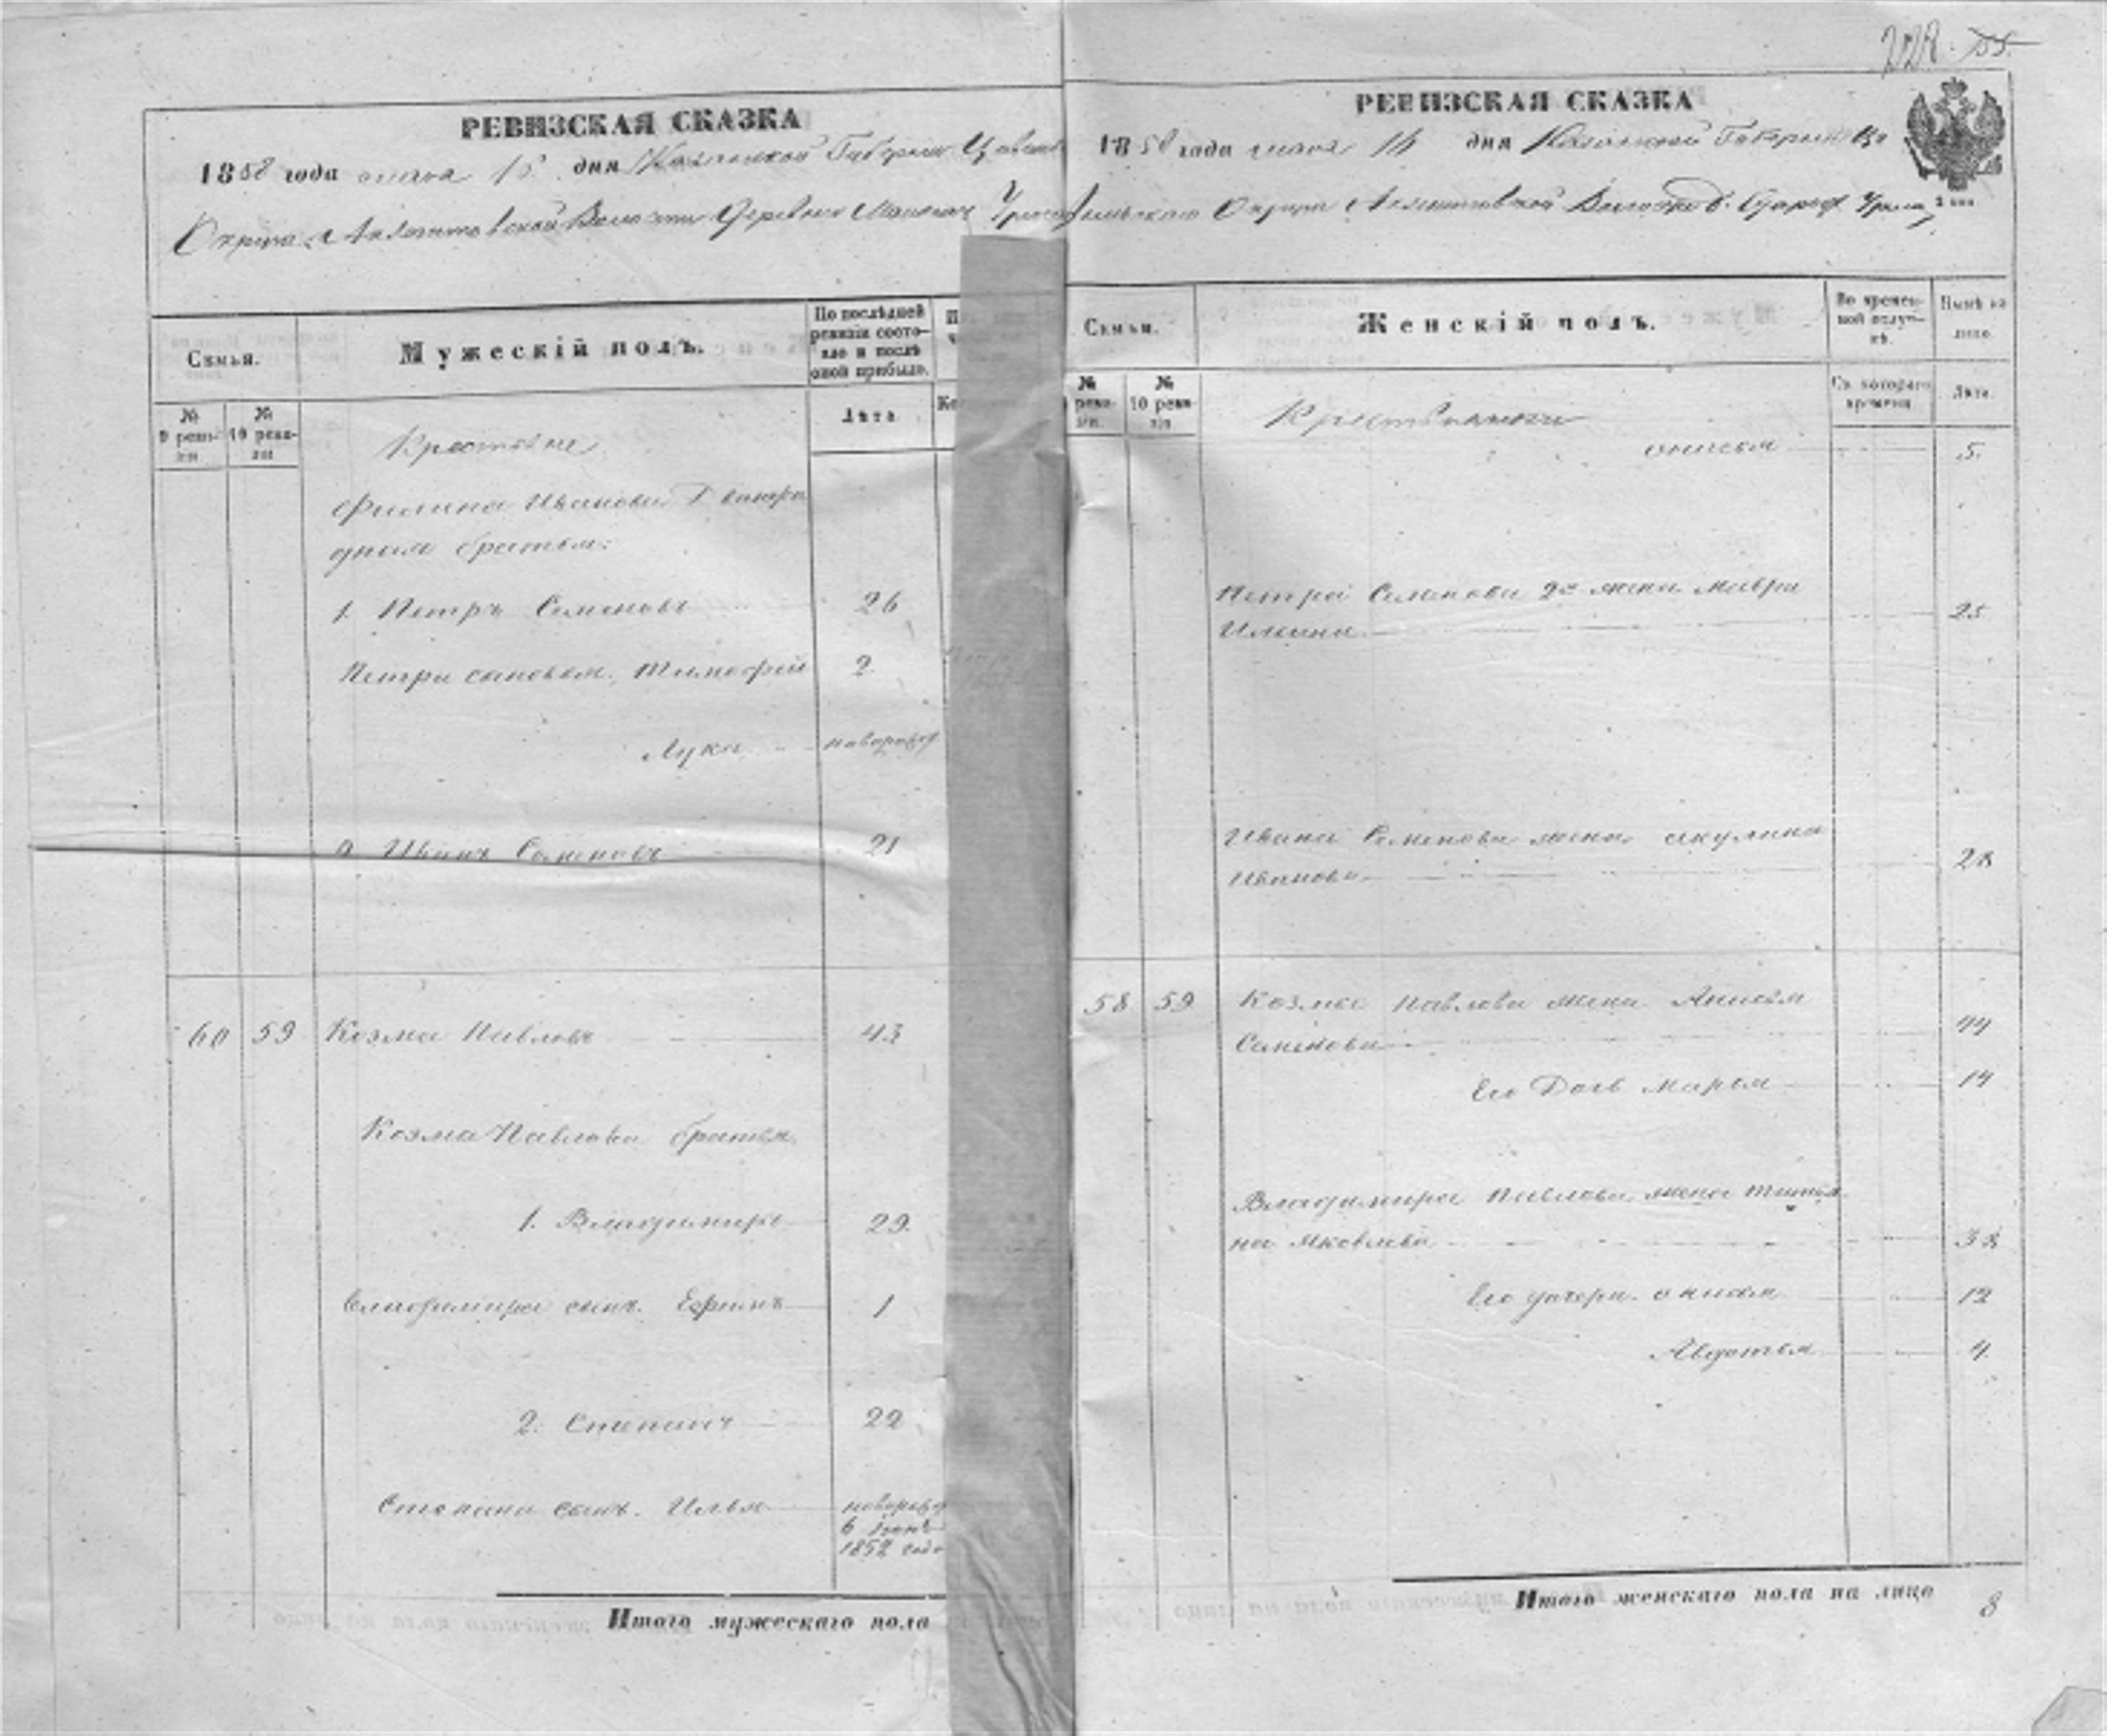 РЕВИЗСКАЯ СКАЗКА
1858 года 15 дня Казанской Губернии
Округа Волости Деревни
Семья.
Мужескій полъ.
По послѣдней
ревизіи состо-
яло и послѣ
оной прибыло.
№
9 реви-
зіи
№
10 реви-
зіи
Лѣта
Крестьяне
Филипа Иванова Двоюро
дныя братья:
1. Петръ Семеновъ 26
Петра сыновья. Тимофей 2
Лука новорожд
2 Иванъ Семеновъ 21
60 59 Козма Павловъ 43
Козма Павлова братья
1. Владимиръ 29.
Владимира сынъ. Ефимъ 1
2. Степанъ 22
Степана сынъ. Илья новорожд
6
1852 года
Итого мужескаго пола
228. 55.
РЕВИЗСКАЯ СКАЗКА
1858 года 15 дня Казанской Губернии
Округа Волости
Семьи.
Женскій полъ.
Во времен-
ной отлуч-
кѣ.
Нынѣ на
лицо.
№
реви-
зіи.
№
10 реви-
зіи
Съ котораго
времени
Лѣта.
Крестьянки
Анисья 5.
Петра Семенова 2я жена Мавра
Ильина 25
Ивана Семенова жена Акулина
Иванова 28
58 59 Козмы Павлова жена Анисья
Семенова 44
Его Дочь Марья 14
Владимира Павлова жена Татья
на Яковлева 32
Его дочери. Анисья 12
Авдотья 4.
Итого женскаго пола на лицо 8